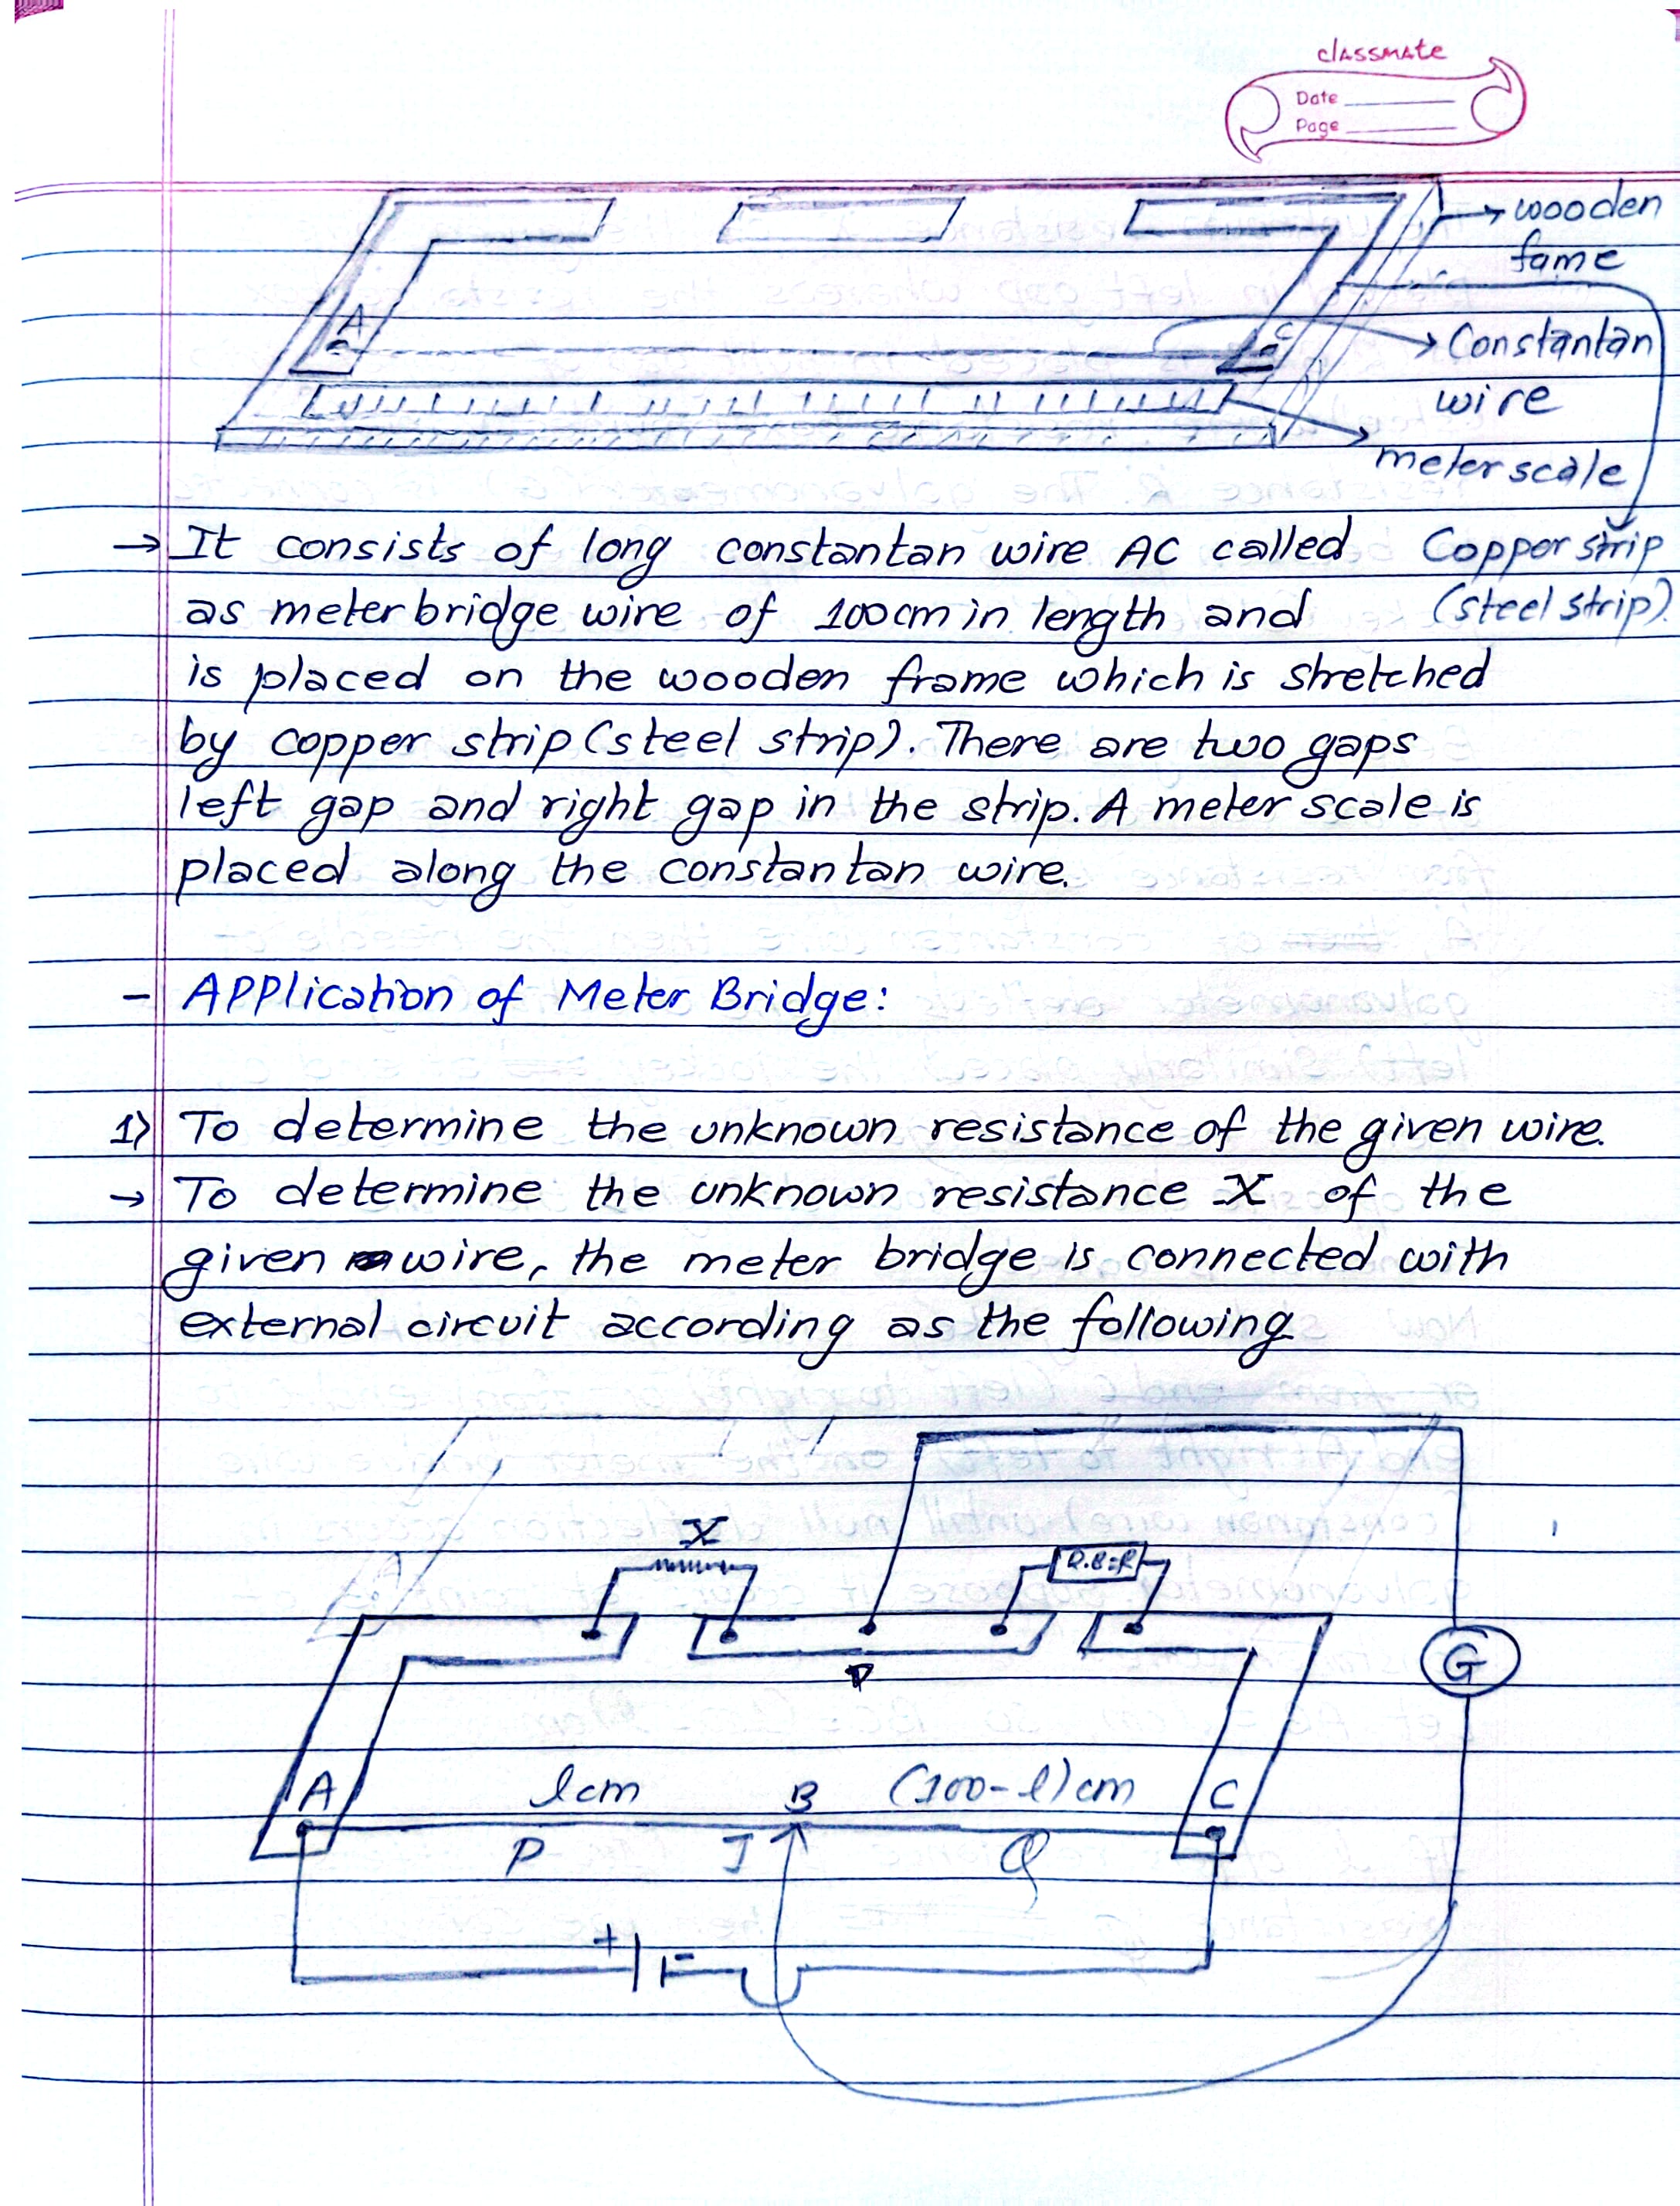 classmate
Date
Page
wooden
fame
Constantan
wire
meter scale
Copper strip
(steel strip).
A
C
→ It consists of long constantan wire AC called
as meter bridge wire of 100cm in length and
is placed on the wooden frame which is stretched
by copper strip (steel strip). There are two gaps
left gap and right gap in the strip. A meter scale is
placed along the constantan wire.
- Application of Meter Bridge:
1) To determine the unknown resistance of the given wire.
→ To determine the unknown resistance X of the
given wire, the meter bridge is connected with
external circuit according as the following
X
R.B=R
D
G
A l cm B (100-l) cm C
P J Q
+ -